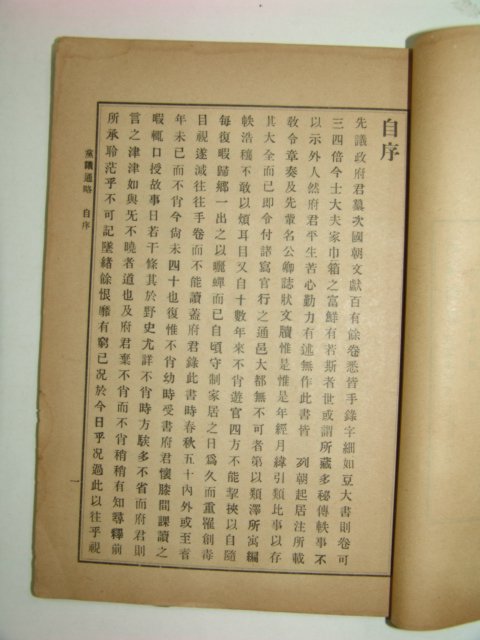 自序
先議政府君纂次國朝文獻百有餘卷悉皆手錄字細如豆大書則卷可
三四倍今士大夫家巾箱之富鮮有若斯者世或謂所藏多秘傳軼事不
以示外人然府君平生苦心勤力有述無作此書皆 列朝起居注所載
敎令章奏及先輩名公卿誌狀文牘惟是惟是年經月緯引類比事以存
其大全而已即令付諸寫官行之通邑大都無不可者第以類澤所寓編
帙浩穰不敢以煩耳目又自十數年來不肖遊宦四方不能挈挾以自隨
每復暇歸鄕一出之以曬蟬而已自頃守制家居之日爲久而重罹創毒
目視遂減往往手卷而不能讀蓋府君錄此書時春秋五十內外或至耆
年未已而不肖今尙未四十也復惟不肖幼時受書府君懷膝間課讀之
暇輒口授故事日若干條其於野史尤詳不肖時方騃多不省而府君則
言之津津如與旡不曉者道也及府君棄不肖而不肖稍稍有知尋釋前
所承聆茫乎不可記墜緒餘恨靡有窮已况於今日乎况過此以往乎視
黨議通略 自序
一